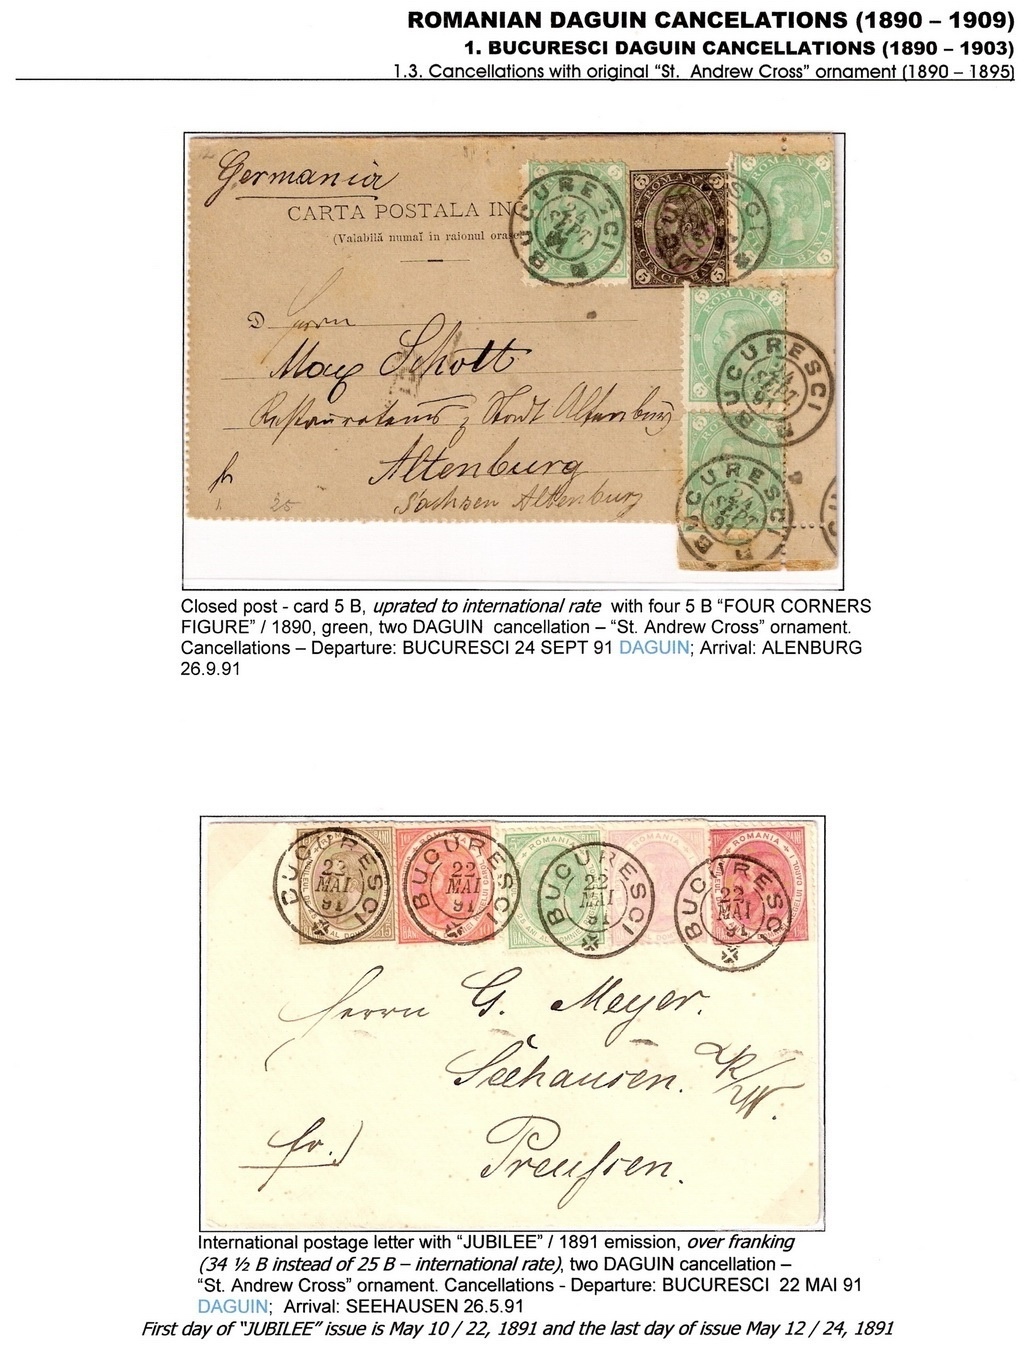 ROMANIAN DAGUIN CANCELATIONS (1890 – 1909)
1. BUCURESCI DAGUIN CANCELLATIONS (1890 – 1903)
1.3. Cancellations with original “St. Andrew Cross” ornament (1890 – 1895)
Germania
CARTA POSTALA IN
(Valabilă numaĭ in raionul orașe
D Herrn
Max Schott
Restaurateur z Stadt Altenburg
Altenburg
Sachsen Altenburg
fr
BUCURESCI
24
SEPT
91
BUCURESCI
ROMANIA
CINCI BANI
5 5 5 5
ROMANIA
5 5
BANI
ROMANIA
5 5
BUCURESCI
24
SEPT
91
BUCURESCI
24
SEPT
91
Closed post - card 5 B, uprated to international rate with four 5 B “FOUR CORNERS
FIGURE” / 1890, green, two DAGUIN cancellation – “St. Andrew Cross” ornament.
Cancellations – Departure: BUCURESCI 24 SEPT 91 DAGUIN; Arrival: ALENBURG
26.9.91
BUCURESCI
22
MAI
91
BUCURESCI
22
MAI
91
BUCURESCI
22
MAI
91
BUCURESCI
22
MAI
91
ROMANIA
ROMANIA
ROMANIA
Herrn G. Meyer.
Seehausen.
fr.)
Preußen.
International postage letter with “JUBILEE” / 1891 emission, over franking
(34 ½ B instead of 25 B – international rate), two DAGUIN cancellation –
“St. Andrew Cross” ornament. Cancellations - Departure: BUCURESCI 22 MAI 91
DAGUIN; Arrival: SEEHAUSEN 26.5.91
First day of “JUBILEE” issue is May 10 / 22, 1891 and the last day of issue May 12 / 24, 1891